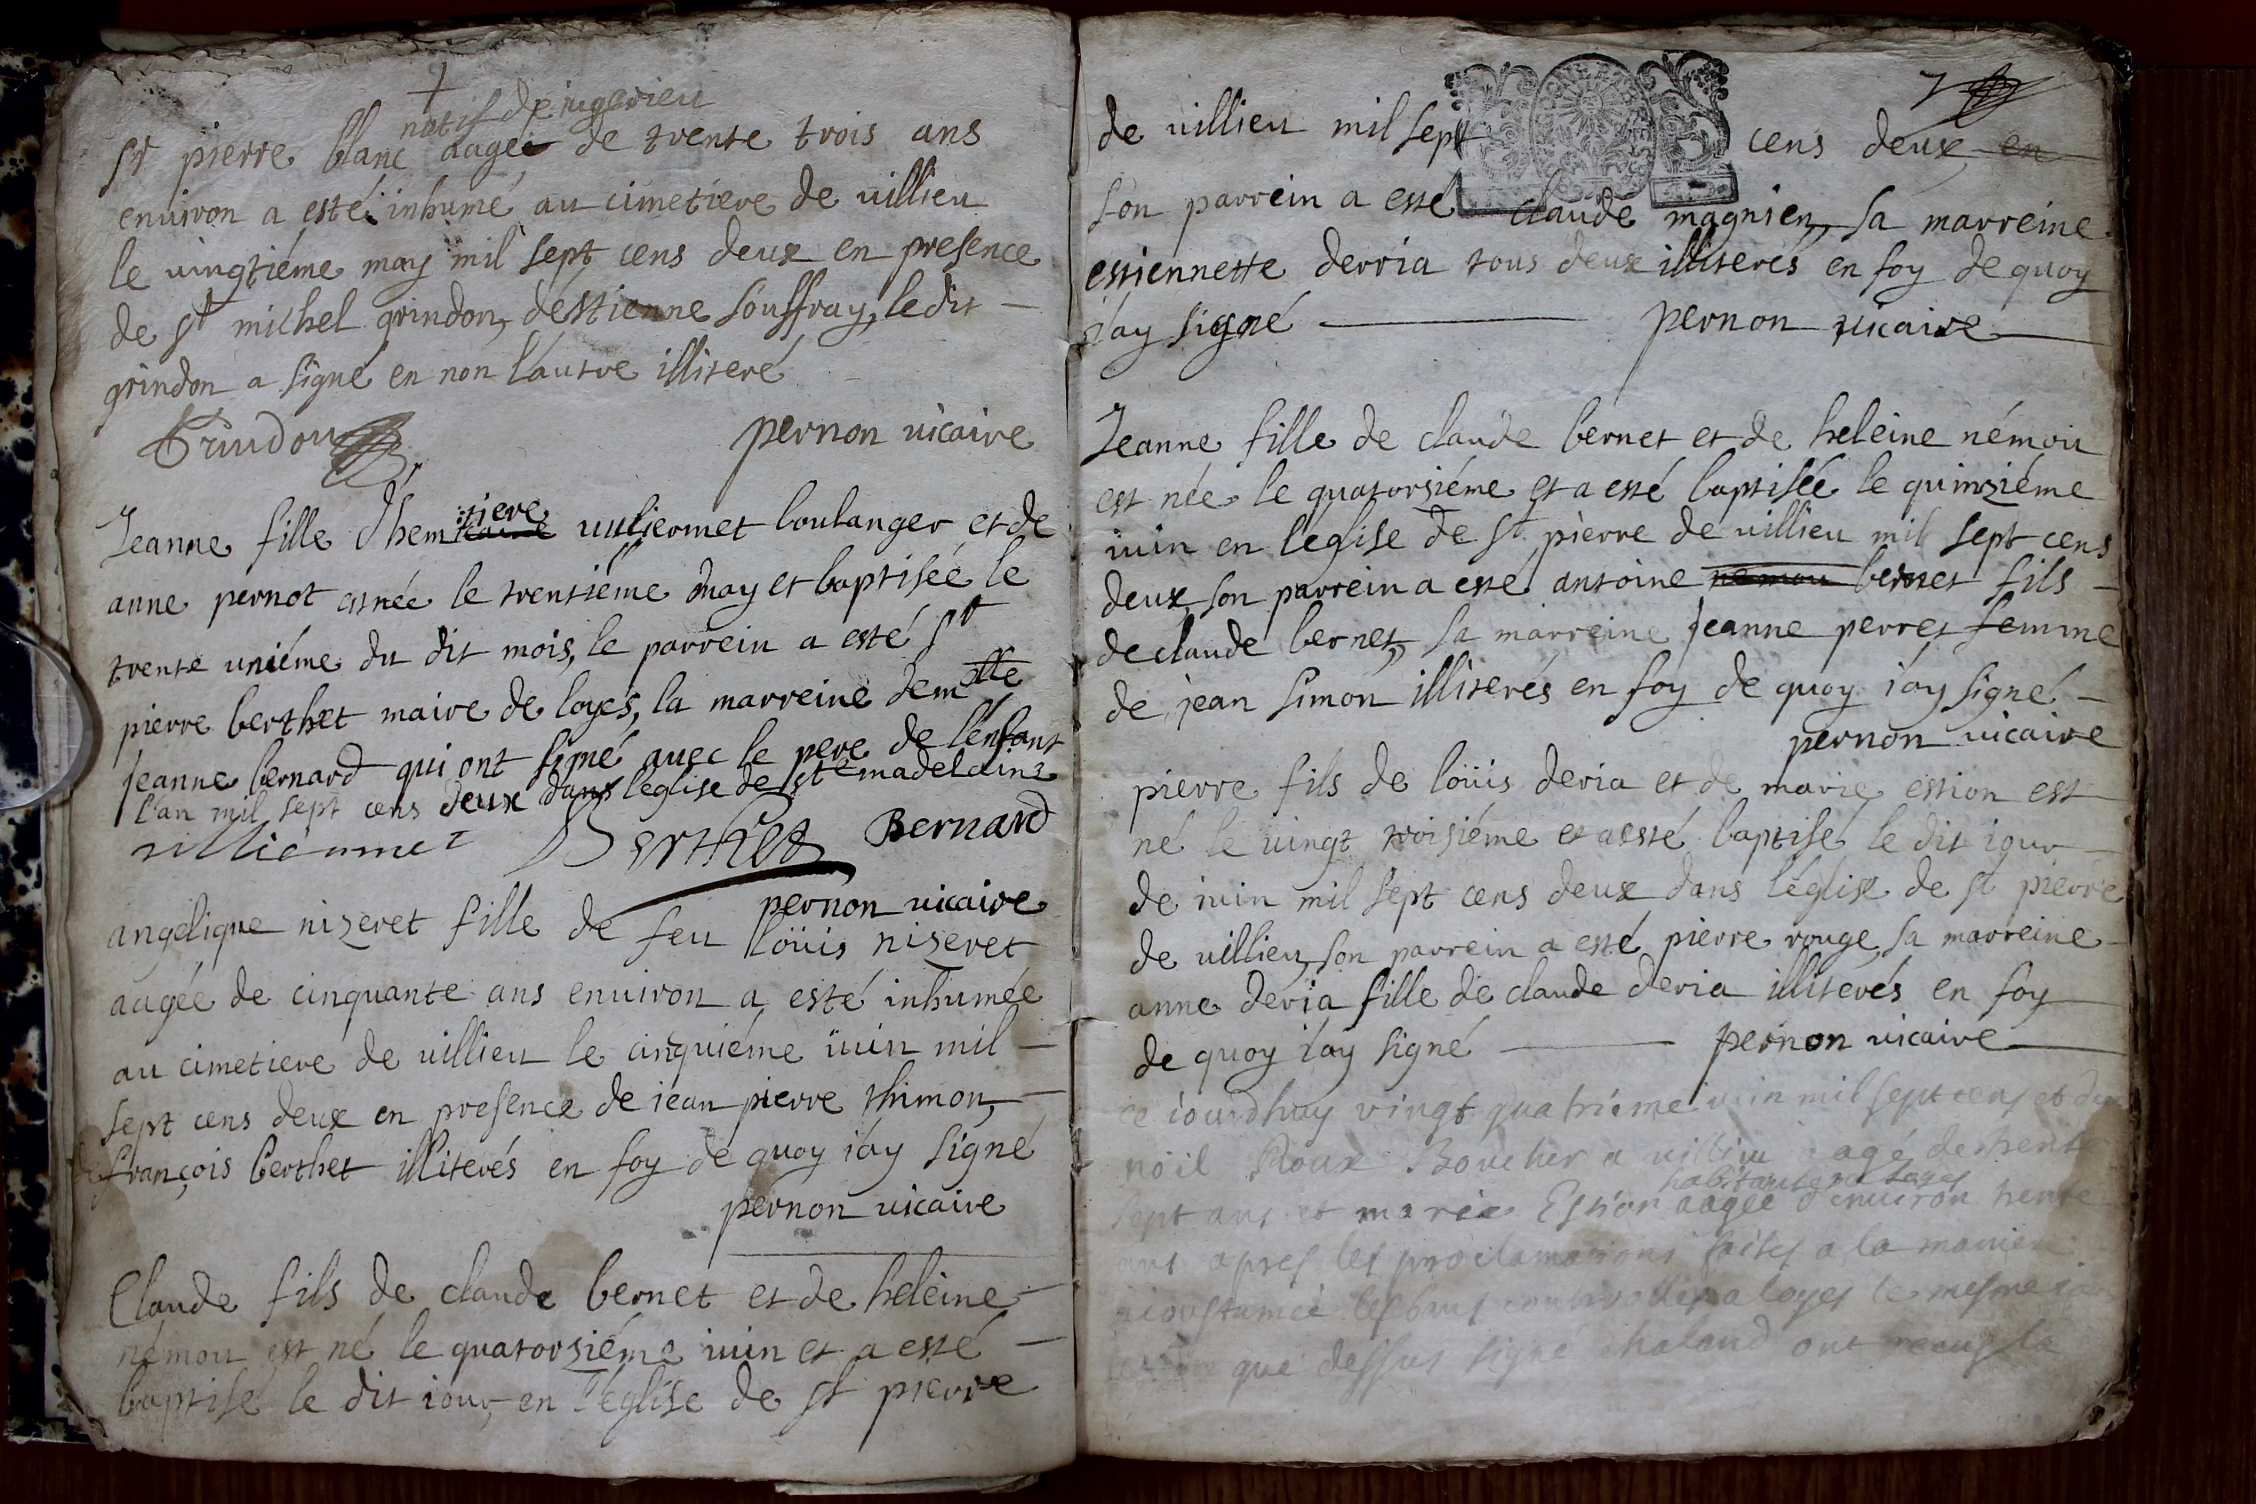 natif de jugerieu
sr pierre blanc aagé de trente trois ans
enuiron a esté inhumé au cimetiere de uillieu
le uingtiéme may mil sept cens deux en presence
de sr michel grindon, d'estienne souffray, le dit
grindon a signé en non l'autre illiteré
Grindon
pernon uicaire
Jeanne fille d'hem tiere uuliermet boulanger et de
anne pernot est née le trentiéme may et baptisée le
trente uniéme du dit mois, le parrein a esté sr
pierre berthet maire de loyes, la marreine dem elle
jeanne bernard qui ont signé auec le pere de l'enfant
l'an mil sept cens deux dans l'eglise de ste madelaine
uilliermet Berthet Bernard
pernon uicaire
angelique nizeret fille de feu loüis nizeret
aagée de cinquante ans enuiron a esté inhumée
au cimetiere de uillieu le cinquiéme iuin mil
sept cens deux en presence de iean pierre thimon,
de françois berthet illiterés en foy de quoy i'ay signé
pernon uicaire
Claude fils de claude bernet et de heleine
némou est né le quatorsiéme iuin et a esté
baptisé le dit iour, en l'église de st pierre
7
de uillieu mil sept cens deux en
son parrein a esté claude magnien, sa marreine
estiennette derria tous deux illiterés en foy de quoy
i'ay signé pernon uicaire
Jeanne fille de claude bernet et de heleine némou
est née le quatorsiéme et a esté baptisée le quinziéme
iuin en l'eglise de st pierre de uillieu mil sept cens
deux, son parrein a esté antoine nemou bernet fils
de claude bernet, sa marreine jeanne perret femme
de jean simon illiterés en foy de quoy i'ay signé
pernon uicaire
pierre fils de loüis deria et de marie estion est
né le uingt troisiéme et a esté baptisé le dit iour
de iuin mil sept cens deux dans l'église de st pierre
de uillieu, son parrein a esté pierre rouge, sa marreine
anne deria fille de claude deria illiterés en foy
de quoy i'ay signé pernon uicaire
ce iourdhuy vingt quatrieme iuin mil sept cens et deux
noil Roux Boucher a villieu agé de trente
habitante a loyes
sept ans et marie Estion aagée d'enuiron trente
ans apres les proclamations faites a la maniere
acoustumée les bans controllés a loyes le mesme iour
que dessus signé chaland ont receus la